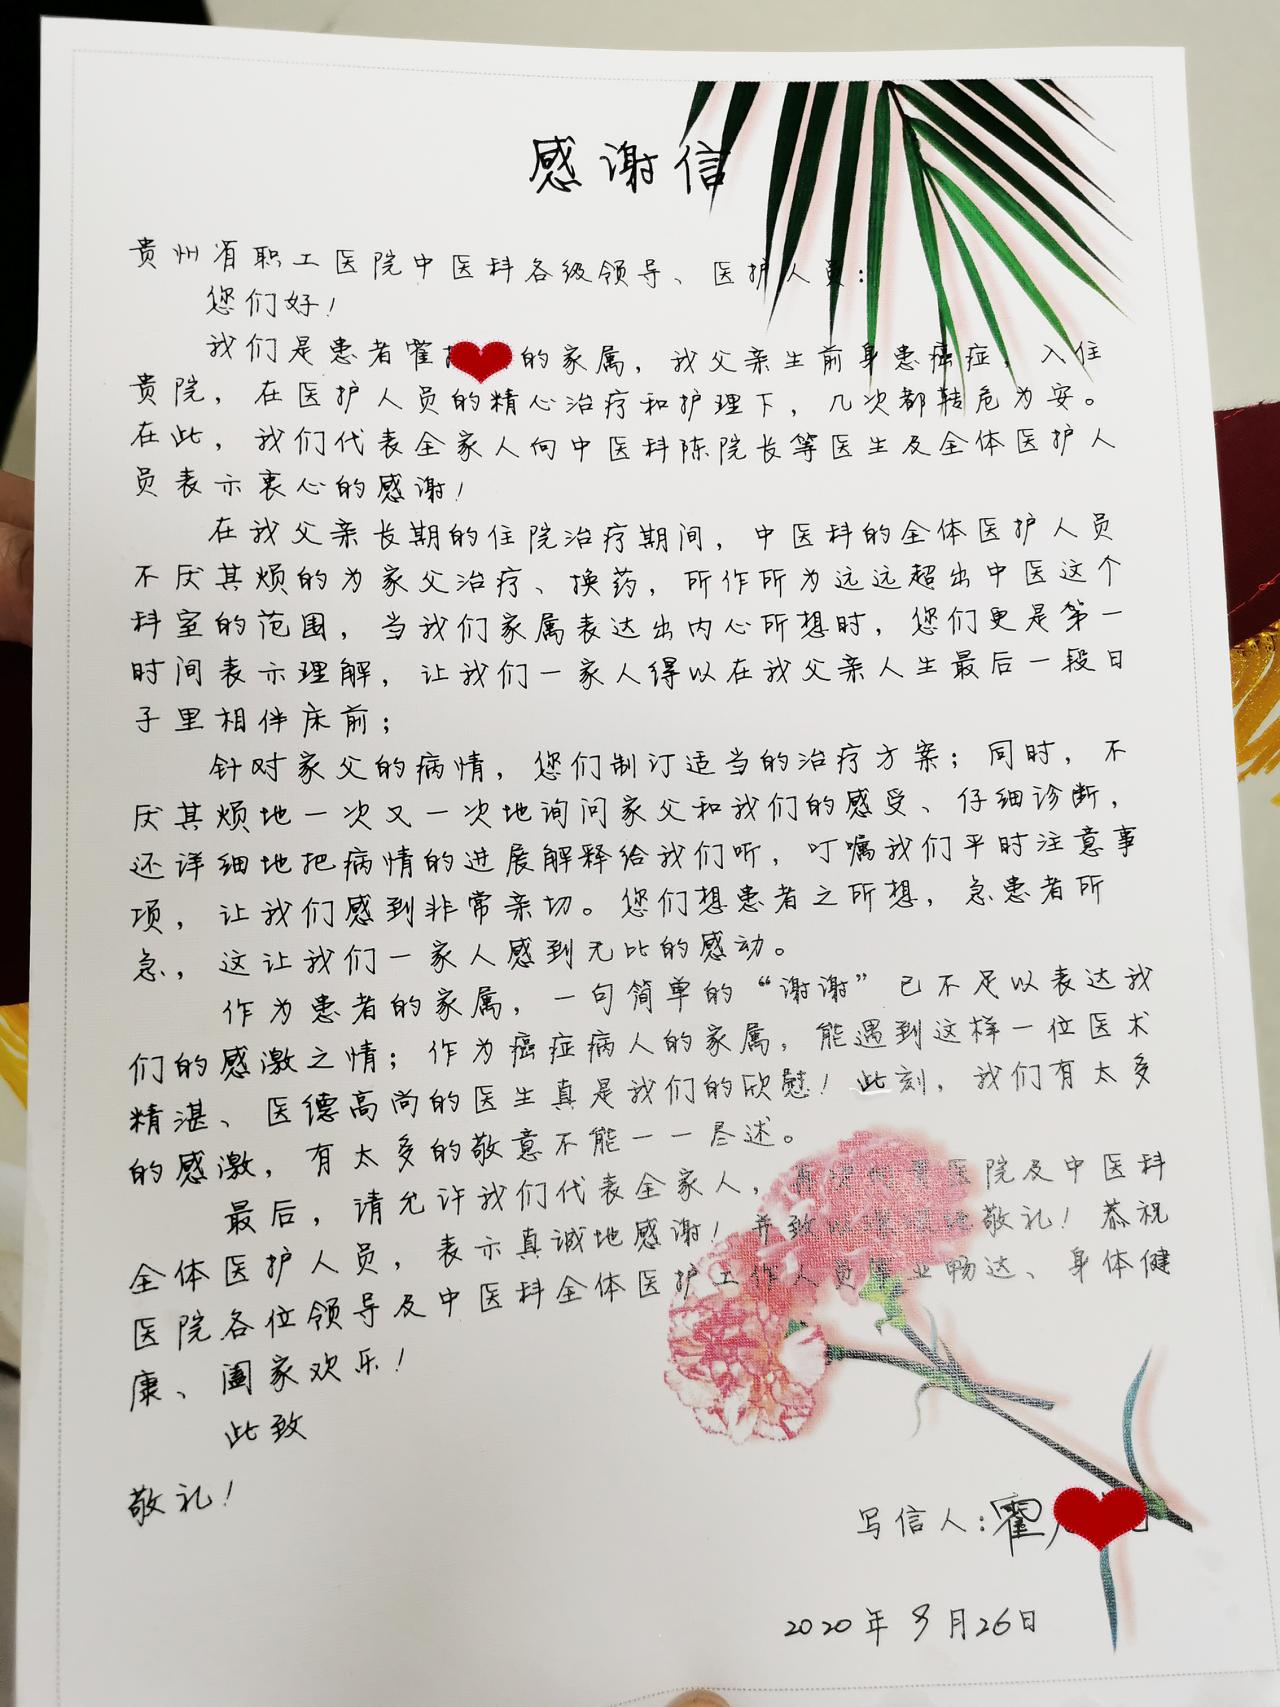 感谢信
贵州省职工医院中医科各级领导、医护人员：
您们好！
我们是患者霍的家属，我父亲生前身患癌症，入住
贵院，在医护人员的精心治疗和护理下，几次都转危为安。
在此，我们代表全家人向中医科陈院长等医生及全体医护人
员表示衷心的感谢！
在我父亲长期的住院治疗期间，中医科的全体医护人员
不厌其烦的为家父治疗、换药，所作所为远远超出中医这个
科室的范围，当我们家属表达出内心所想时，您们更是第一
时间表示理解，让我们一家人得以在我父亲人生最后一段日
子里相伴床前；
针对家父的病情，您们制订适当的治疗方案；同时，不
厌其烦地一次又一次地询问家父和我们的感受、仔细诊断，
还详细地把病情的进展解释给我们听，叮嘱我们平时注意事
项，让我们感到非常亲切。您们想患者之所想，急患者所
急，这让我们一家人感到无比的感动。
作为患者的家属，一句简单的“谢谢”已不足以表达我
们的感激之情；作为癌症病人的家属，能遇到这样一位医术
精湛、医德高尚的医生真是我们的欣慰！此刻，我们有太多
的感激，有太多的敬意不能一一尽述。
最后，请允许我们代表全家人，再次向贵医院及中医科
全体医护人员，表示真诚地感谢！并致以深深地敬礼！恭祝
医院各位领导及中医科全体医护工作人员事业畅达、身体健
康、阖家欢乐！
此致
敬礼！
写信人：霍
2020年9月26日